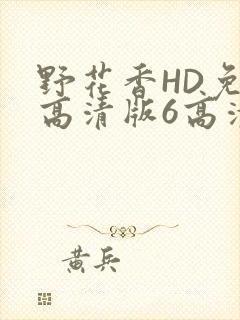 野花香HD免
高清版6高清
黄兵